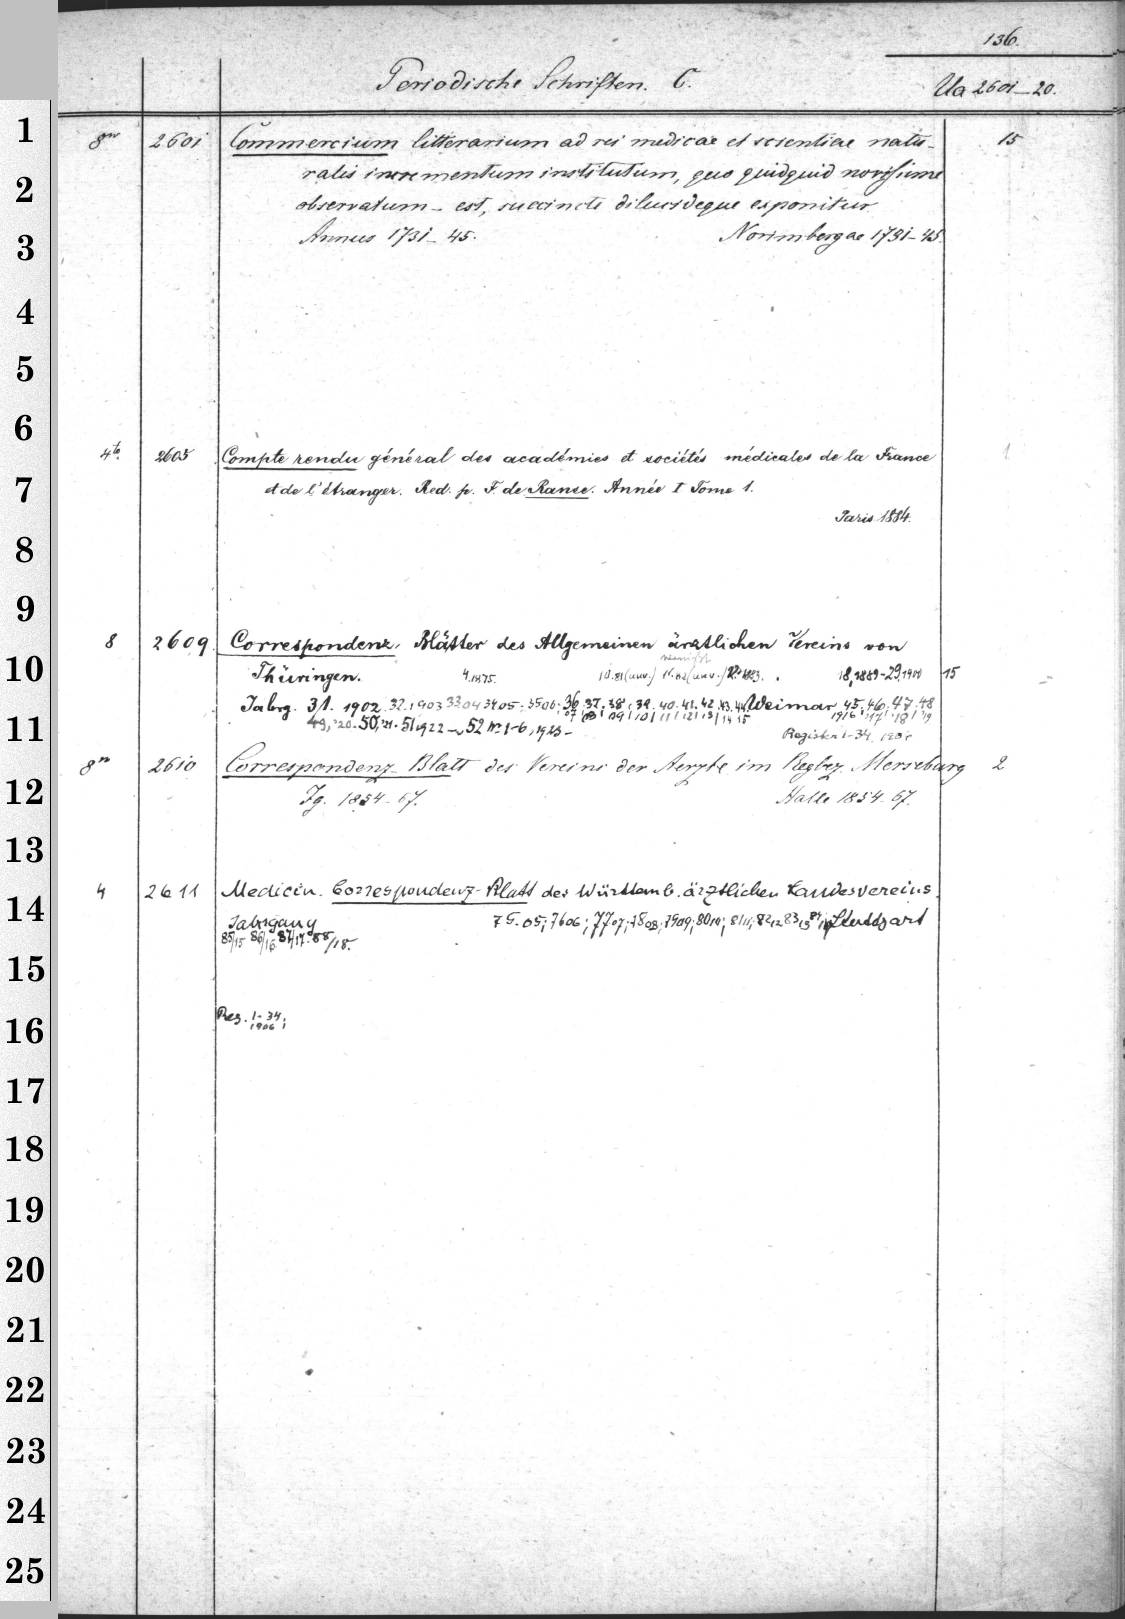 136.
Periodische Schriften. C.
Ua 2601–20.
1
2
3
4
5
6
7
8
9
10
11
12
13
14
15
16
17
18
19
20
21
22
23
24
25
8vo 2601 Commercium litterarium ad rei medicae et scientiae natu- 15
ralis incrementum institutum, quo quidquid novissime
observatum est, succincte dilucideque exponitur
Annus 1731–45. Norimbergae 1731–45.
4to. 2605 Compte rendu général des académies et sociétés médicales de la France 1
et de l'étranger. Red. p. F. de Ranse. Année I Tome 1.
Paris 1884.
8 2609 Correspondenz-Blätter des Allgemeinen ärztlichen Vereins von
Thüringen. 4.1875. 10.81 (unv.) 11.82 (unv.) 12.1883. 18,1889-29,1900 15
Jahrg. 31. 1902. 32.1903 33.04 34.05; 35.06; 36. 37. 38; 39. 40. 41. 42. 43. 44. Weimar 45; 46; 47. 48
07 08 09 10 11 12 13 14 15 1916 17 18 19
49, '20. 50, '21. 51,1922 –, 52 No 1–6, 1923 –
Register 1–34
8vo 2610 Correspondenz-Blatt des Vereins der Aerzte im Regbez. Merseburg 2
Jg. 1854–67. Halle 1854–67.
4 2611 Medicin. Correspondenz-Blatt des Württemb. ärztlichen Landesvereins.
Jahrgang 75.05; 76 06; 77 07; 78 08; 79 09; 80 10; 81 11; 82 12 83 13 84 14 Stuttgart
85/15 86/16. 87/17. 88/18.
Reg. 1–34;
1906;